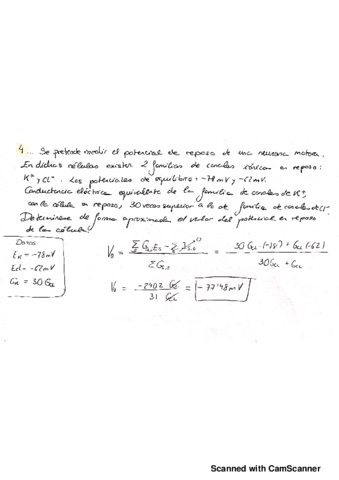 4... Se pretende medir el potencial de reposo de una neurona motora.
En dichas células existen 2 familias de canales iónicos en reposo:
K+ y Cl-. Los potenciales de equilibrio: -78mV y -62mV.
Conductancia eléctrica equivalente de la familia de canales de K+,
con la célula en reposo, 30 veces superior a la de familia de canales de Cl-
Determinese de forma aproximada el valor del potencial en reposo
de la célula
Datos
EK = -78mV
Ecl = -62mV
GK = 30 Gcl
V0 = = 30 Gcl · (-78) + Gcl (-62) / 30Gcl + Gcl
V0 = -2402 Gcl / 31 Gcl = -77'48mV
Scanned with CamScanner